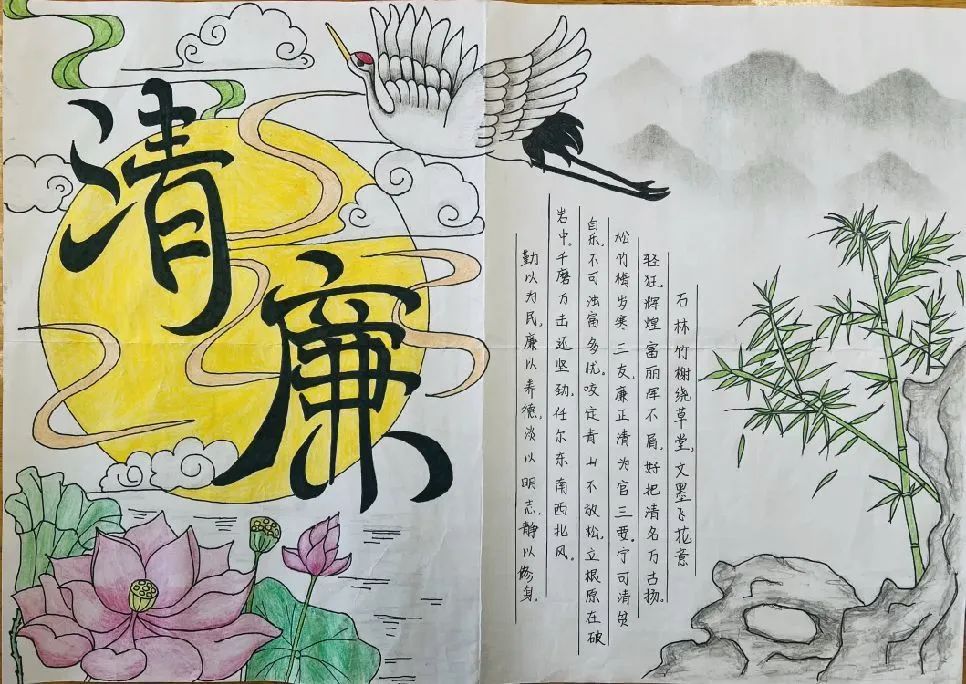 清廉
石林竹榭绕草堂,文墨飞花意
轻狂,辉煌富丽浑不屑,好把清名万古扬。
松竹梅岁寒三友,廉正清为官三要。宁可清贫
自乐,不可浊富多忧。咬定青山不放松,立根原在破
岩中。千磨万击还坚劲,任尔东南西北风。
勤以为民,廉以养德,淡以明志,静以修身。